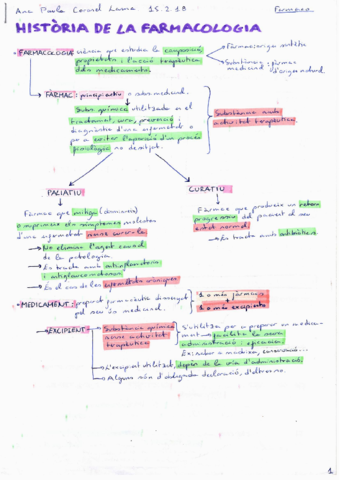 Ana Paula Coronel Launa 15.2.18 Farmaco
HISTÒRIA DE LA FARMACOLOGIA
• FARMACOLOGIA: ciència que estudia la composició,
propietats i l'acció terapèutica
dels medicaments.
Fàrmacs: origen sintètic
Substàncies: fàrmac
medicinal d'origen natural.
FARMAC: principi actiu o subs. medicinal.
Subs. química utilitzada en el
tractament, cura, prevenció i
diagnòstic d'una enfermetat o
per a evitar l'aparició d'un procés
fisiològic no desitjat.
Substància amb
activitat terapèutica.
PALIATIU
CURATIU
Fàrmac que mitiga (disminueix)
o suprimeix els símptomes molestos
d'una enfermetat sense curar-la
No elimina l'agent causal
de la patologia.
Es tracta amb antiinflamatoris
i antiglucomatosos
És el cas de les enfermetats cròniques
Fàrmac que produeix un retorn
progressiu del pacient al seu
estat normal
Es tracta amb antibiòtics
• MEDICAMENT: preparat farmacèutic dissenyat
pel seu ús medicinal.
1 o més fàrmacs
1 o més excipients
EXCIPIENT: Substància química
sense activitat
terapèutica
S'utilitza per a preparar un medica-
ment facilita la seva
administració i eficàcia.
L'excipient utilitzat, depèn de la via d'administració,
Alguns són d'obligada declaració, d'altres no.
1